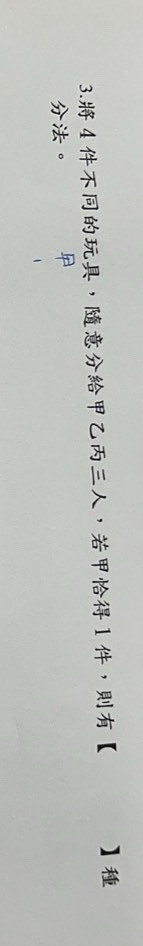 3.將 4 件不同的玩具，隨意分給甲乙丙三人，若甲恰得 1 件，則有【　　　】種
分法。
甲
1